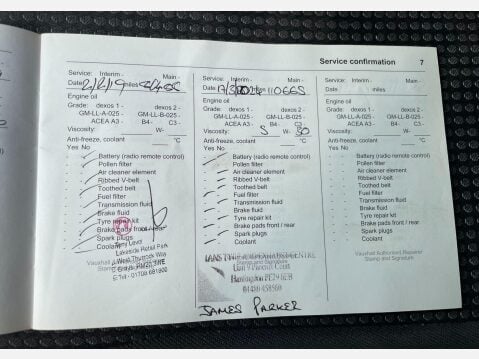 Service confirmation 7
Service: Interim - Main -
Date miles
Engine oil
Grade: dexos 1 - dexos 2 -
GM-LL-A-025 - GM-LL-B-025 -
ACEA A3 - B4- C3 -
Viscosity: W-
Anti-freeze, coolant °C
Yes No
Battery (radio remote control)
Pollen filter
Air cleaner element
Ribbed V-belt
Toothed belt
Fuel filter
Transmission fluid
Brake fluid
Tyre repair kit
Brake pads front / rear
Spark plugs
Coolant
Lakeside Retail Park
West Thurrock
Vauxhall
Service: Interim - Main -
Date miles 11066S
Engine oil
Grade: dexos 1 - dexos 2 -
GM-LL-A-025 - GM-LL-B-025 -
ACEA A3 - B4- C3 -
Viscosity: 5 W- 30
Anti-freeze, coolant °C
Yes No
Battery (radio remote control)
Pollen filter
Air cleaner element
Ribbed V-belt
Toothed belt
Fuel filter
Transmission fluid
Brake fluid
Tyre repair kit
Brake pads front / rear
Spark plugs
Coolant
JAMES PARKER
Service: Interim - Main -
Date miles
Engine oil
Grade: dexos 1 - dexos 2 -
GM-LL-A-025 - GM-LL-B-025 -
ACEA A3 - B4- C3 -
Viscosity: W-
Anti-freeze, coolant °C
Yes No
Battery (radio remote control)
Pollen filter
Air cleaner element
Ribbed V-belt
Toothed belt
Fuel filter
Transmission fluid
Brake fluid
Tyre repair kit
Brake pads front / rear
Spark plugs
Coolant
Vauxhall Authorised Repairer
Stamp and Signature